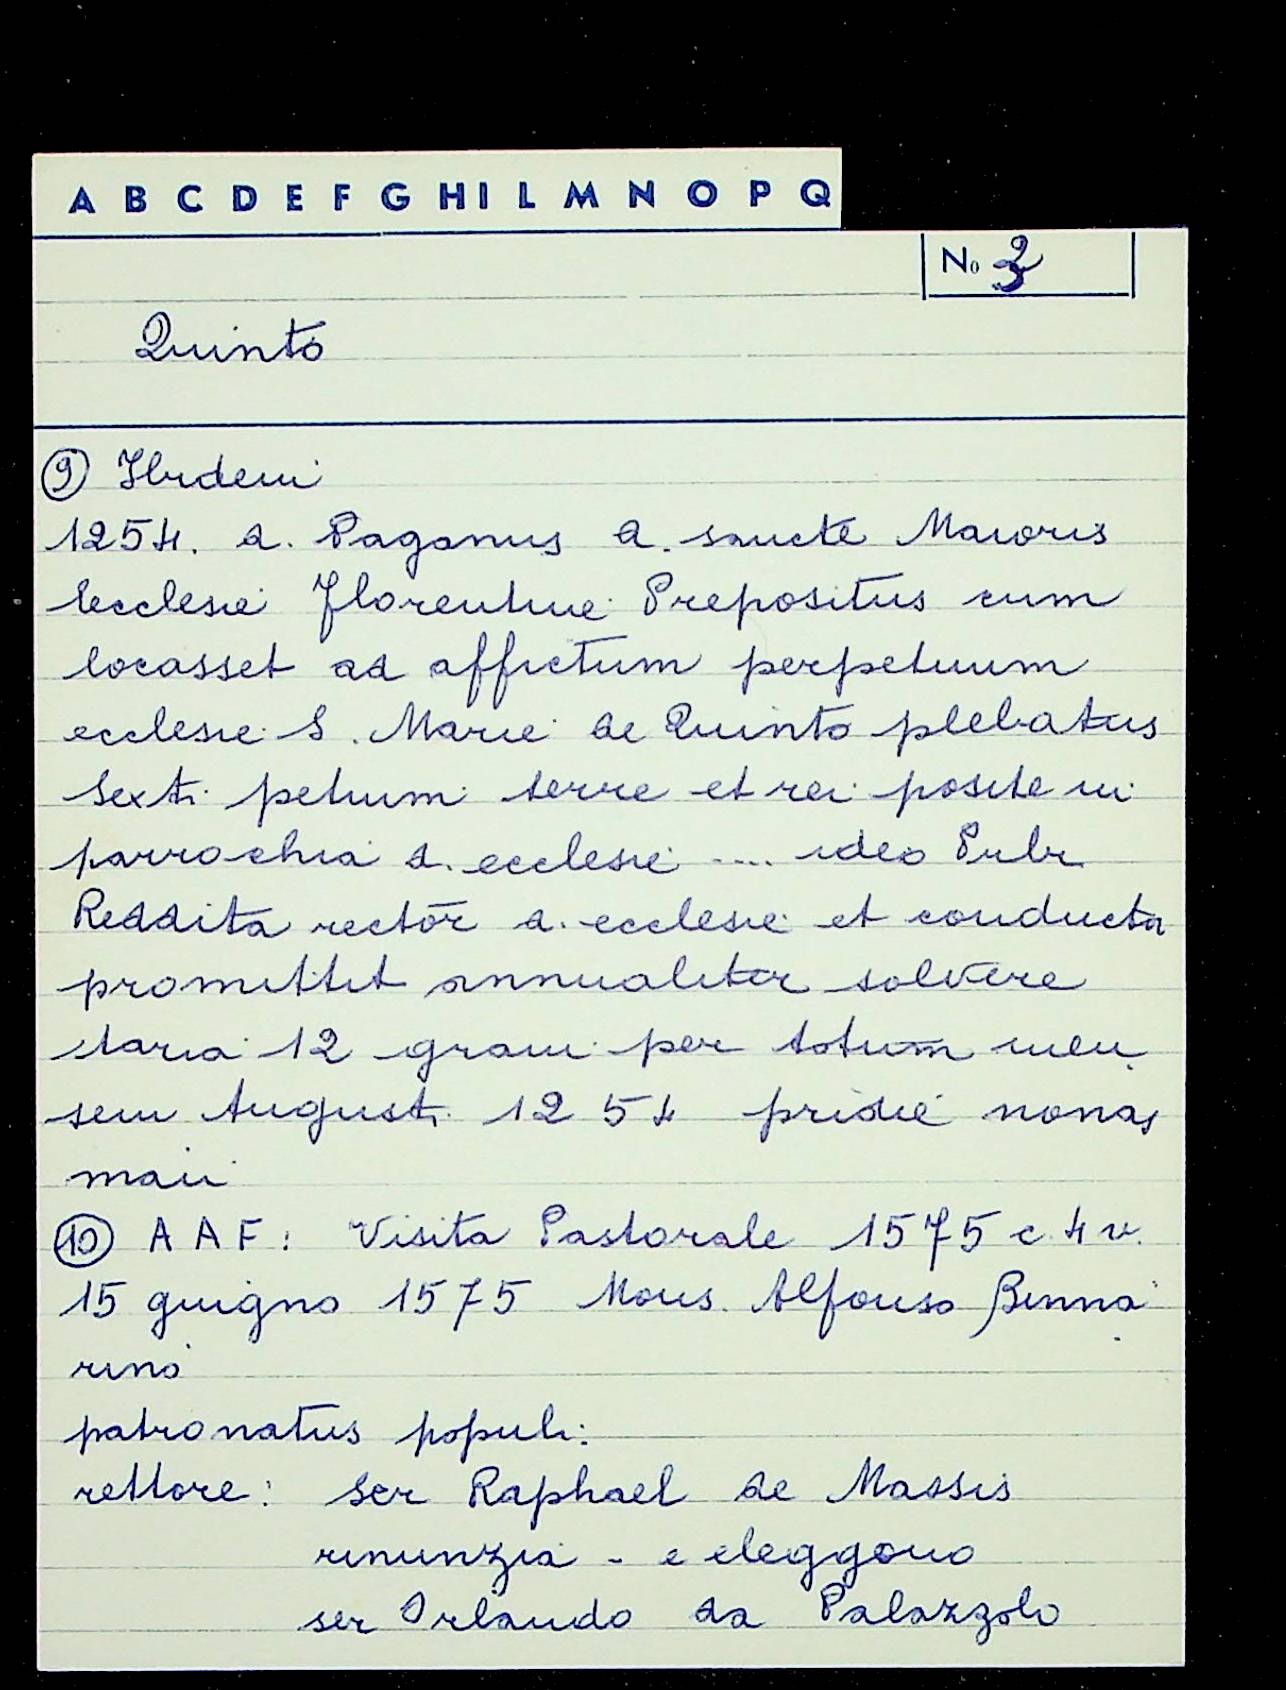 A B C D E F G H I L M N O P Q
No 3
Quinto
9 Ibidem
1254. d. Paganus d. sancte Maioris
Eecclesie Florentine Prepositus cum
locasset ad affictum perpetuum
ecclesie S. Marie de Quinto plebatus
Sexti petium terre et rei posite in
parrochia d. ecclesie .... ideo Prbr
Reddita rector d. ecclesie et conducta
promittit annualiter solvere
staria 12 grani per totum men
sem Augusti 1254 pridie nonas
maii
10 A A F: Visita Pastorale 1575 c. 4 v.
15 giugno 1575 Mons. Alfonso Binna
rino
patronatus populi:
rettore: Ser Raphael de Massis
rinunzia - e eleggono
ser Orlando da Palazzolo